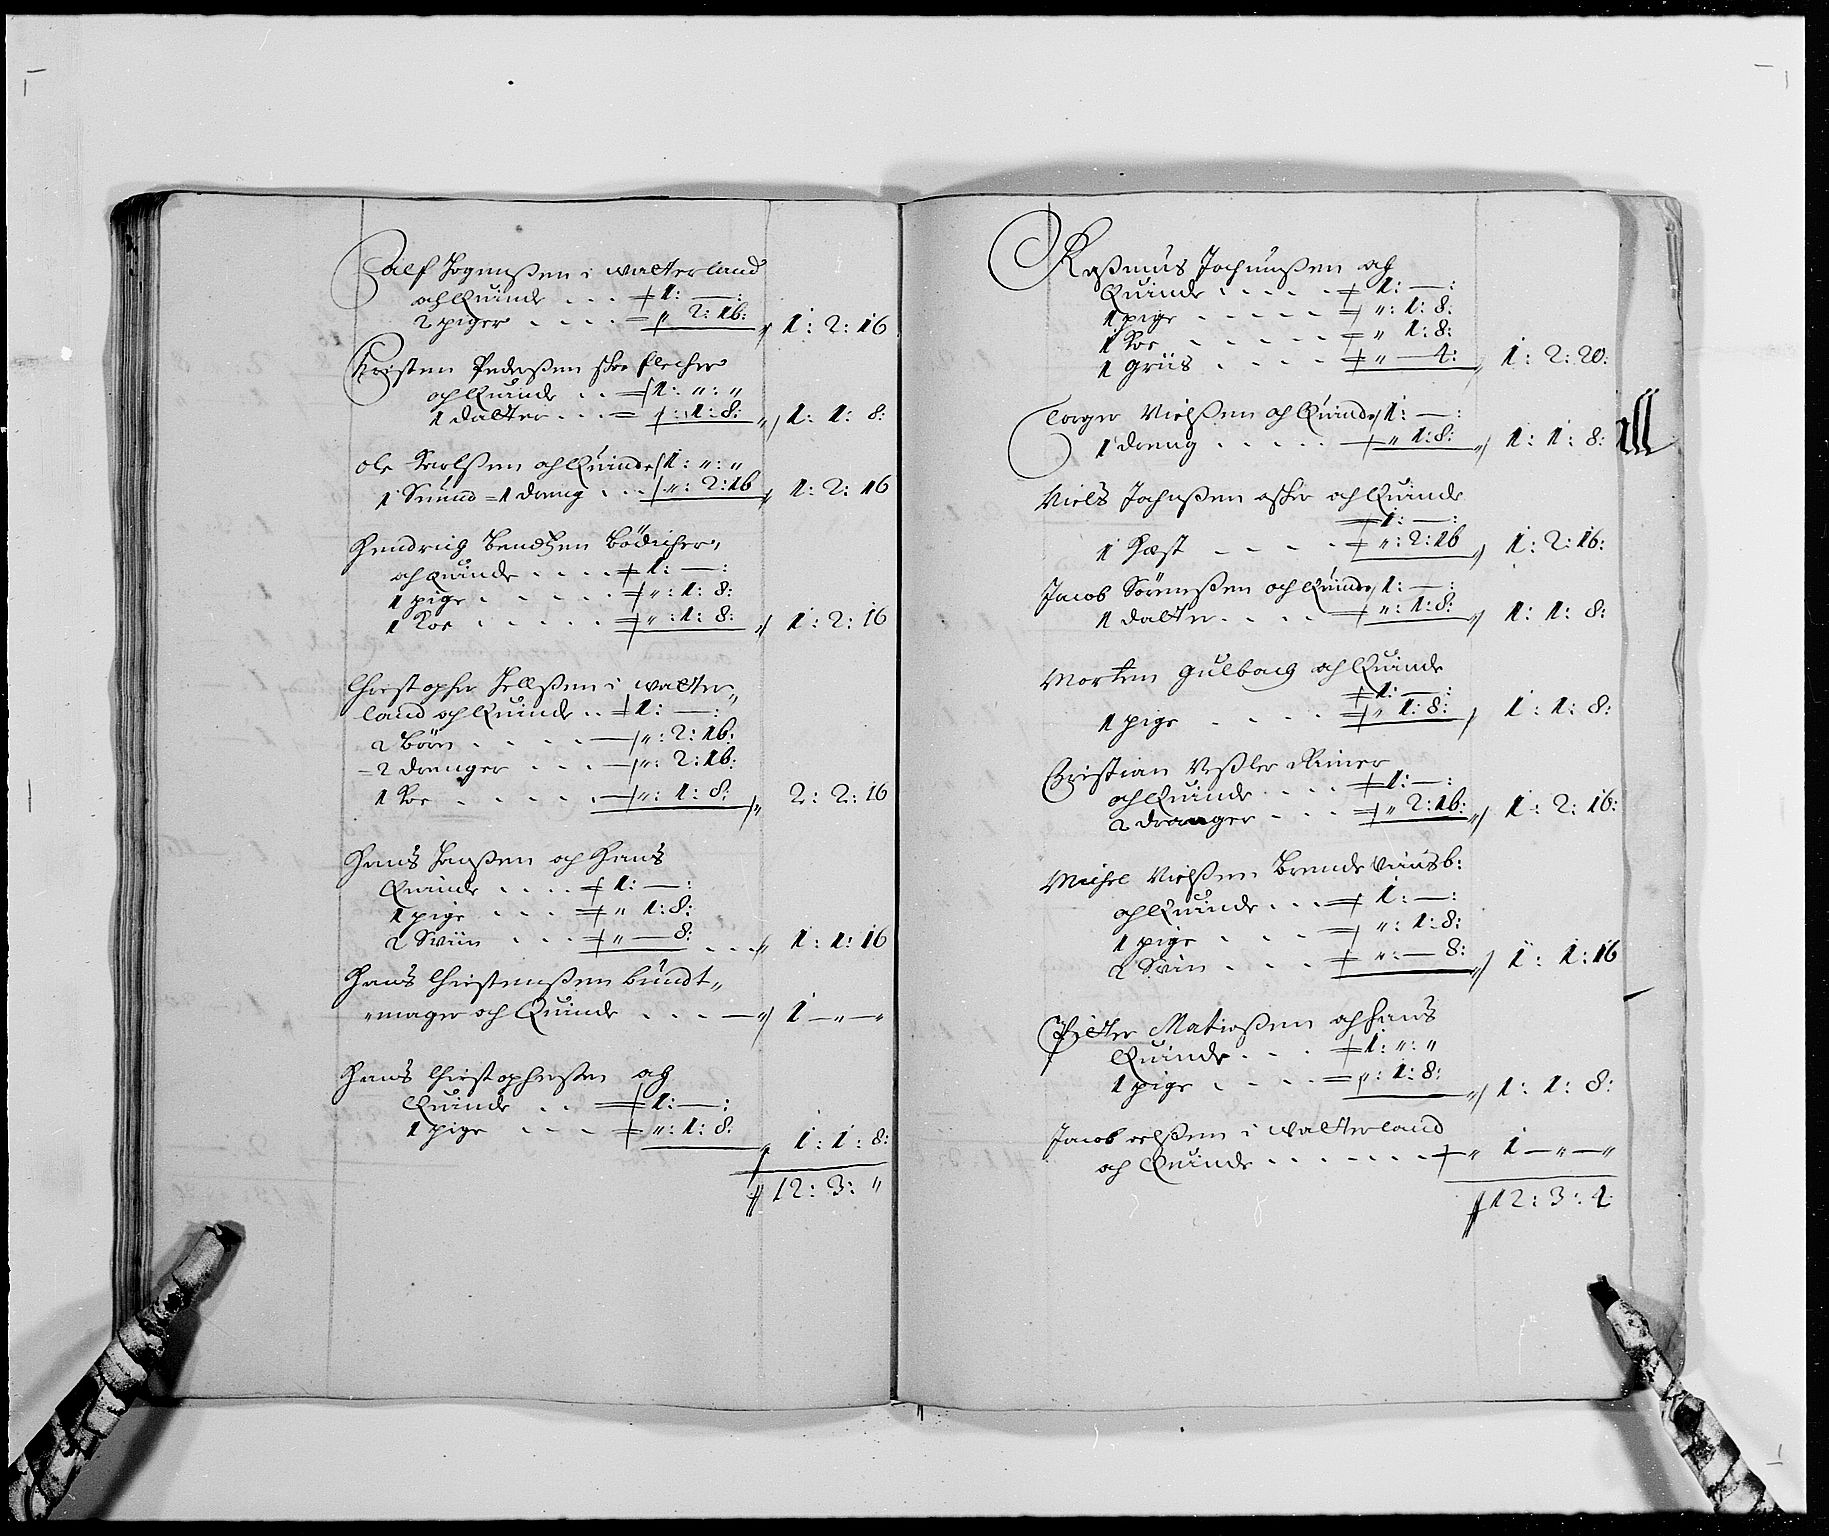 Alf Jogenßen i walterland
och Quinde . . . 1: —:
2 piger . . . . " 2: 16: 1: 2: 16
Kristen Pedersßen skoeflecher
och Quinde . . 1: ": "
1 datter . . . : 1: 8: 1: 1: 8:
Ole Karlßen och Quinde 1: ": "
1 Suend = 1 dreng . . ": 2: 16 1: 2: 16
Hendrich Bendtzen Bödicher,
och Quinde . . . . 1: —:
1 pige . . . . . ": 1: 8:
1 Koe . . . . . ": 1: 8: 1: 2: 16
Christopher Jellßen i walter„
land och Quinde . . 1: —:
2 Börn . . . . ": 2: 16:
= 2 drenger . . . ": 2: 16:
1 Koe . . . . . ": 1: 8: 2: 2: 16
Hans Hanßen och Hans
Quinde . . . . 1: —:
1 pige . . . " 1: 8:
2 Sviin . . . " — 8: . . . 1: 1: 16
Hans Christenßen bundt„
"mager och Quinde . . . — 1 — " — "
Hans Christophersen og
Quinde . . 1: —:
1 pige . . . ": 1: 8: 1: 1: 8:
12: 3: "
Raßmus Jochumßen og
Quinde . . . . . 1: —:
1 pige . . . . . ": 1: 8:
1 Koe . . . . . . " 1: 8:
1 Griis . . . . " — 4: 1: 2: 20:
Torger Nielßen och Quinde 1: —:
1 dreng . . . . . " 1: 8: 1: 1: 8:
Niels Jochußen och Quinde
1: —:
1 Hæst . . . . ": 2: 16 1: 2: 16:
Jacob Sörenßen och Quinde 1: —:
1 datter . . . . ": 1: 8: 1: 1: 8:
Morten Gulbach och Quinde
1: —:
1 pige . . . . " 1: 8: 1: 1: 8:
Christian Reimer
och Quinde . . . . 1: —:
2 drenger . . . . " 2: 16: 1: 2: 16:
Michel Nielßen Brendeviinsb:
och Quinde . . . 1: —:
1 pige . . . . ": 1: 8:
2 Sviin . . . . ": — 8: 1: 1: 16
Pitter Matisßen och hans
Quinde . . . 1: ": "
1 pige . . . . ": 1: 8: 1: 1: 8:
Jacob Oelßen i walterland
och Quinde . . . . . . . " 1 — " — "
12: 3: 4